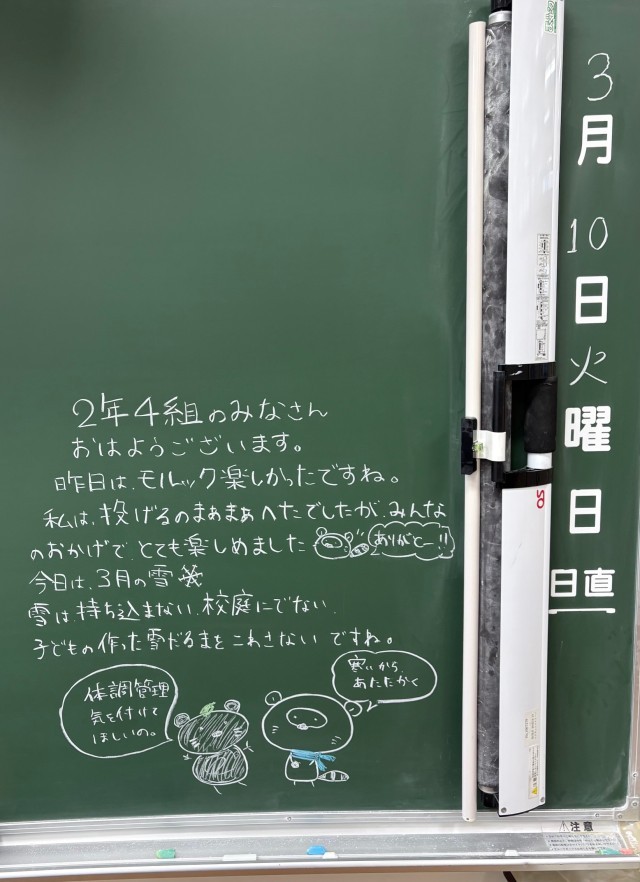 3
月
10
日
火
曜
日
日直
2年4組のみなさん
おはようございます。
昨日は、モルック楽しかったですね。
私は、投げるのまぁまぁへたでしたが、みんな
のおかげで、とても楽しめました
ありがとー!!
今日は、3月の雪
雪は、持ち込まない、校庭にでない、
子どもの作った雪だるまをこわさないですね。
体調管理
気を付けて
ほしいの。
寒いから、
あたたかく
OS
注意